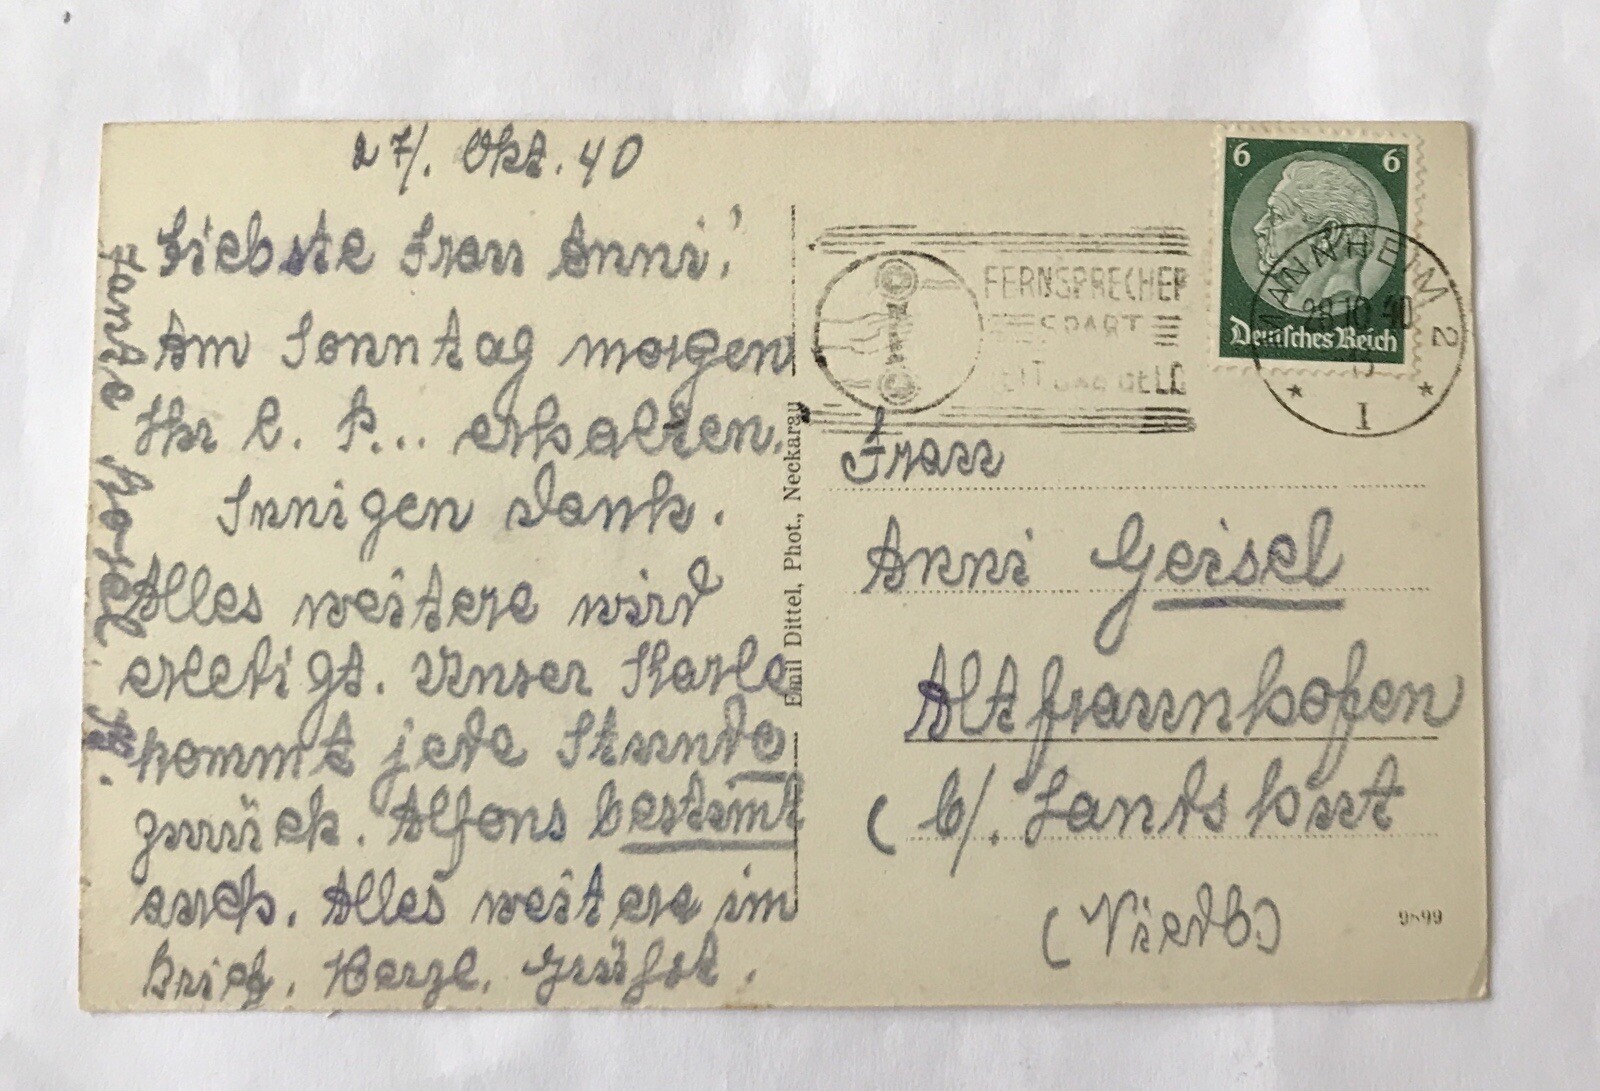 27/. Okt. 40
Liebste Frau Anni!
Am Sonntag morgen
Ihr l. P... erhalten.
Innigen Dank.
Alles weitere wird
erledigt. Unser Karle
kommt jede Stunde
zurück. Alfons bestimt
auch. Alles weitere im
Brief. Herzl. Grüße
Emil Dittel, Phot., Neckarau
FERNSPRECHER
SPART
ZEIT UND GELD
6 6
Deutsches Reich
MANNHEIM 2
28.10.40
I
Frau
Anni Geisel
Altfraunhofen
( b/. Landshut
(Niedb.)
9899